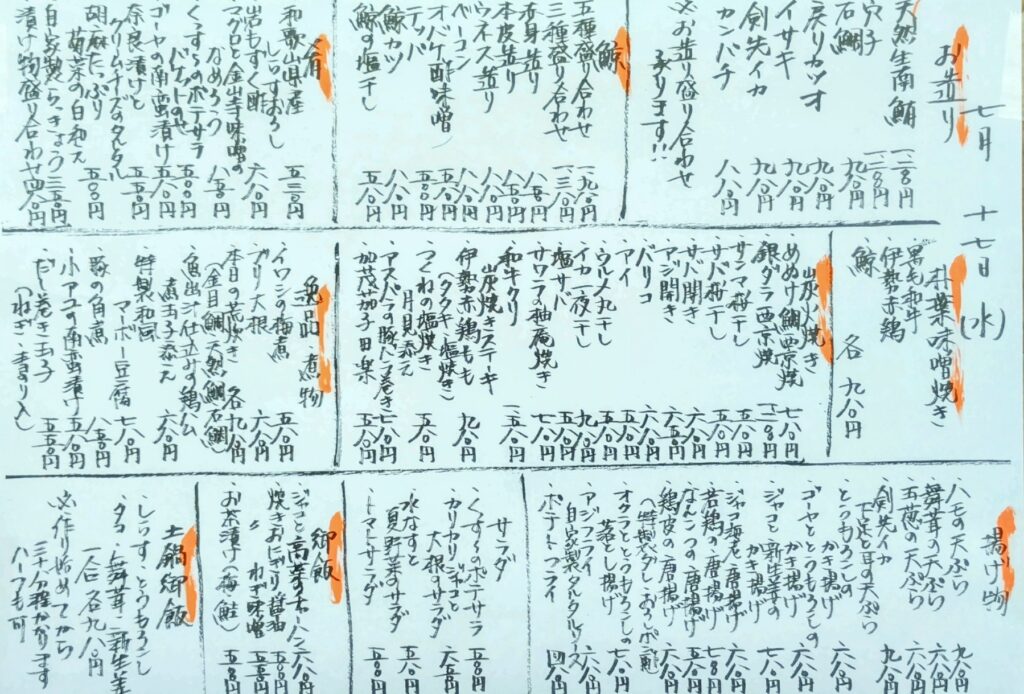 七月 十七日(水)
お造り
・天然生南鮪 一二八〇円
・穴子
・石鯛 九八〇円
・戻りカツオ 九八〇円
・イサキ 九八〇円
・剣先イカ 九八〇円
・カンパチ 八八〇円
※お造り盛り合わせ
承ります!!
鯨
・五種盛り合わせ 一九八〇円
・三種盛り合わせ 一三八〇円
・赤身造り 八五〇円
・本皮造り 八五〇円
・ウネス造り 八八〇円
・ベーコン 八八〇円
・オバケ酢味噌 五八〇円
・テッパ
・鯨カツ 八八〇円
・鯨の塩干し 五八〇円
肴
・和歌山県産
しらすおろし 五三〇円
・岩もずく酢 六八〇円
・マグロと金山寺味噌の
なめろう 八八〇円
・くずくらのポテサラ
バゲットのせ 五八〇円
・ゴーヤの南蛮漬け 五五〇円
・奈良漬けと
クリームチーズのタルタル 五五〇円
・胡麻たっぷり
菊菜の白和え 五〇〇円
・自家製らっきょう 三五〇円
・漬け物盛り合わせ 四八〇円
朴葉味噌焼き
・黒毛和牛
・伊勢赤鶏
・鯨
各 九八〇円
炭火焼き
・めぬけ鯛西京焼 七八〇円
・銀ダラ西京焼
・サンマ桜干し 五五〇円
・サバ桜干し
・サバ開き
・アジ開き
・バリコ
・アイ
・ウルメ丸干し
・イカ一夜干し 九八〇円
・塩サバ
・サワラの柚庵焼き 七八〇円
・和牛タタリ
炭焼きステーキ
・伊勢赤鶏もも
(タタキ・塩焼き) 九八〇円
・つくねの塩焼き
月見添え 五八〇円
・アスパラの豚バラ巻き
・加茂茄子田楽 五五〇円
逸品 煮物
・イワシの梅煮 五八〇円
・ブリ大根 六八〇円
・本日の荒炊き 各九八〇円
(金目鯛・天然鯛・石鯛)
・魚出汁仕立ての鶏ハム
煮玉子添え 六八〇円
・特製和風
マーボー豆腐 七八〇円
・豚の角煮 八五〇円
・小アユの南蛮漬け 五八〇円
・だし巻き玉子 五五〇円
(ねぎ・青のり入)
揚げ物
・ハモの天ぷら 九八〇円
・舞茸の天ぷら 六八〇円
・玉葱の天ぷら 六八〇円
・剣先イカ
下足と耳の天ぷら 九八〇円
・とうもろこしの
かき揚げ 六八〇円
・ゴーヤととうもろこしの
かき揚げ 六八〇円
・ジャコと新生姜の
かき揚げ 七八〇円
・ジャコ海老唐揚げ 六八〇円
・若鶏の唐揚げ 七八〇円
・なんこつの唐揚げ 五八〇円
・鶏皮の唐揚げ 五五〇円
(特製ダレ・おろしポン酢)
・オクラととうもろこしの
落とし揚げ 七八〇円
・アジフライ
自家製タルタルソース 六八〇円
・ポテトフライ 四八〇円
サラダ
・くずくらのポテサラ 五八〇円
・カリカリジャコと
大根のサラダ 六五〇円
・水なすと
夏野菜のサラダ 五八〇円
・トマトサラダ 五〇〇円
御飯
・ジャコと高菜のチャーハン 六八〇円
・焼きおにぎり醤油 五〇〇円
〃 ねぎ味噌 五五〇円
・お茶漬け(梅・鮭) 五五〇円
土鍋御飯
・しらす・とうもろこし
・タコ・舞茸・新生姜
一合 各九八〇円
※作り始めてから
三十分程かかります
ハーフも可